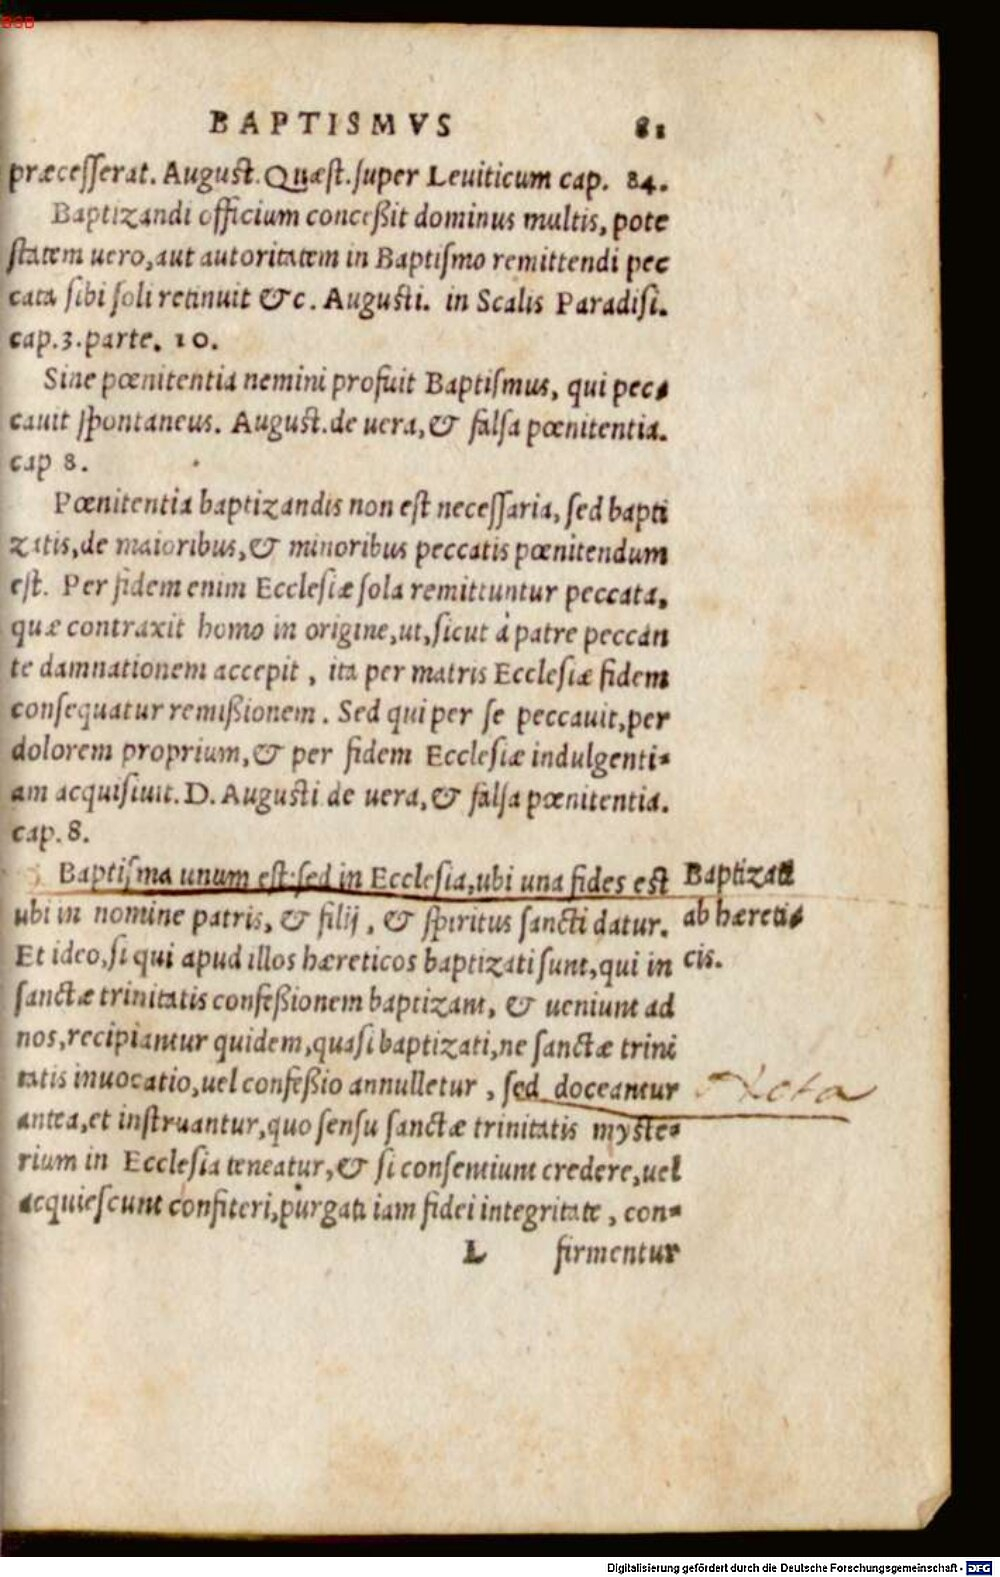 BAPTISMVS 81
præcesserat. August. Quæst. super Leuiticum cap. 84.
Baptizandi officium conceßit dominus multis, pote
statem uero, aut autoritatem in Baptismo remittendi pec
cata sibi soli retinuit &c. Augusti. in Scalis Paradisi.
cap. 3. parte. 10.
Sine pœnitentia nemini profuit Baptismus, qui pec-
cauit spontaneus. August. de uera, & falsa pœnitentia.
cap 8.
Pœnitentia baptizandis non est necessaria, sed bapti
zatis, de maioribus, & minoribus peccatis pœnitendum
est. Per fidem enim Ecclesiæ sola remittuntur peccata,
quæ contraxit homo in origine, ut, sicut à patre peccan
te damnationem accepit, ita per matris Ecclesiæ fidem
consequatur remißionem. Sed qui per se peccauit, per
dolorem proprium, & per fidem Ecclesiæ indulgenti-
am acquisiuit. D. Augusti de uera, & falsa pœnitentia.
cap. 8.
Baptisma unum est: sed in Ecclesia, ubi una fides est
ubi in nomine patris, & filij, & spiritus sancti datur.
Et ideo, si qui apud illos hæreticos baptizati sunt, qui in
sanctæ trinitatis confeßionem baptizant, & ueniunt ad
nos, recipiantur quidem, quasi baptizati, ne sanctæ trini
tatis inuocatio, uel confeßio annulletur, sed doceantur
antea, et instruantur, quo sensu sanctæ trinitatis myste-
rium in Ecclesia teneatur, & si consentiunt credere, uel
acquiescunt confiteri, purgati iam fidei integritate, con-
L firmentur
Baptizati
ab hæreti-
cis.
Nota
Digitalisierung gefördert durch die Deutsche Forschungsgemeinschaft - DFG